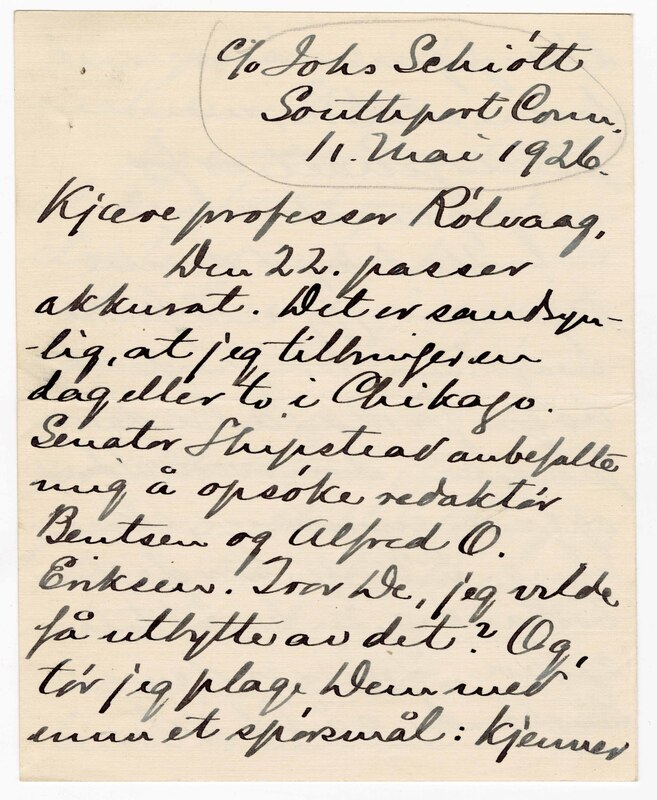 c/o Johs Schiött
Southport Conn.
11. Mai 1926.
Kjære professor Rölvaag,
Den 22. passer
akkurat. Det er sandsyn-
-lig, at jeg tilbringer en
dag eller to i Chikago.
Senator Shipstead anbefalte
mig å opsöke redaktör
Bentsen og Alfred O.
Eriksen. Tror De, jeg vilde
få utbytte av det? Og,
tör jeg plage Dem med
ennu et spörsmål: kjenner